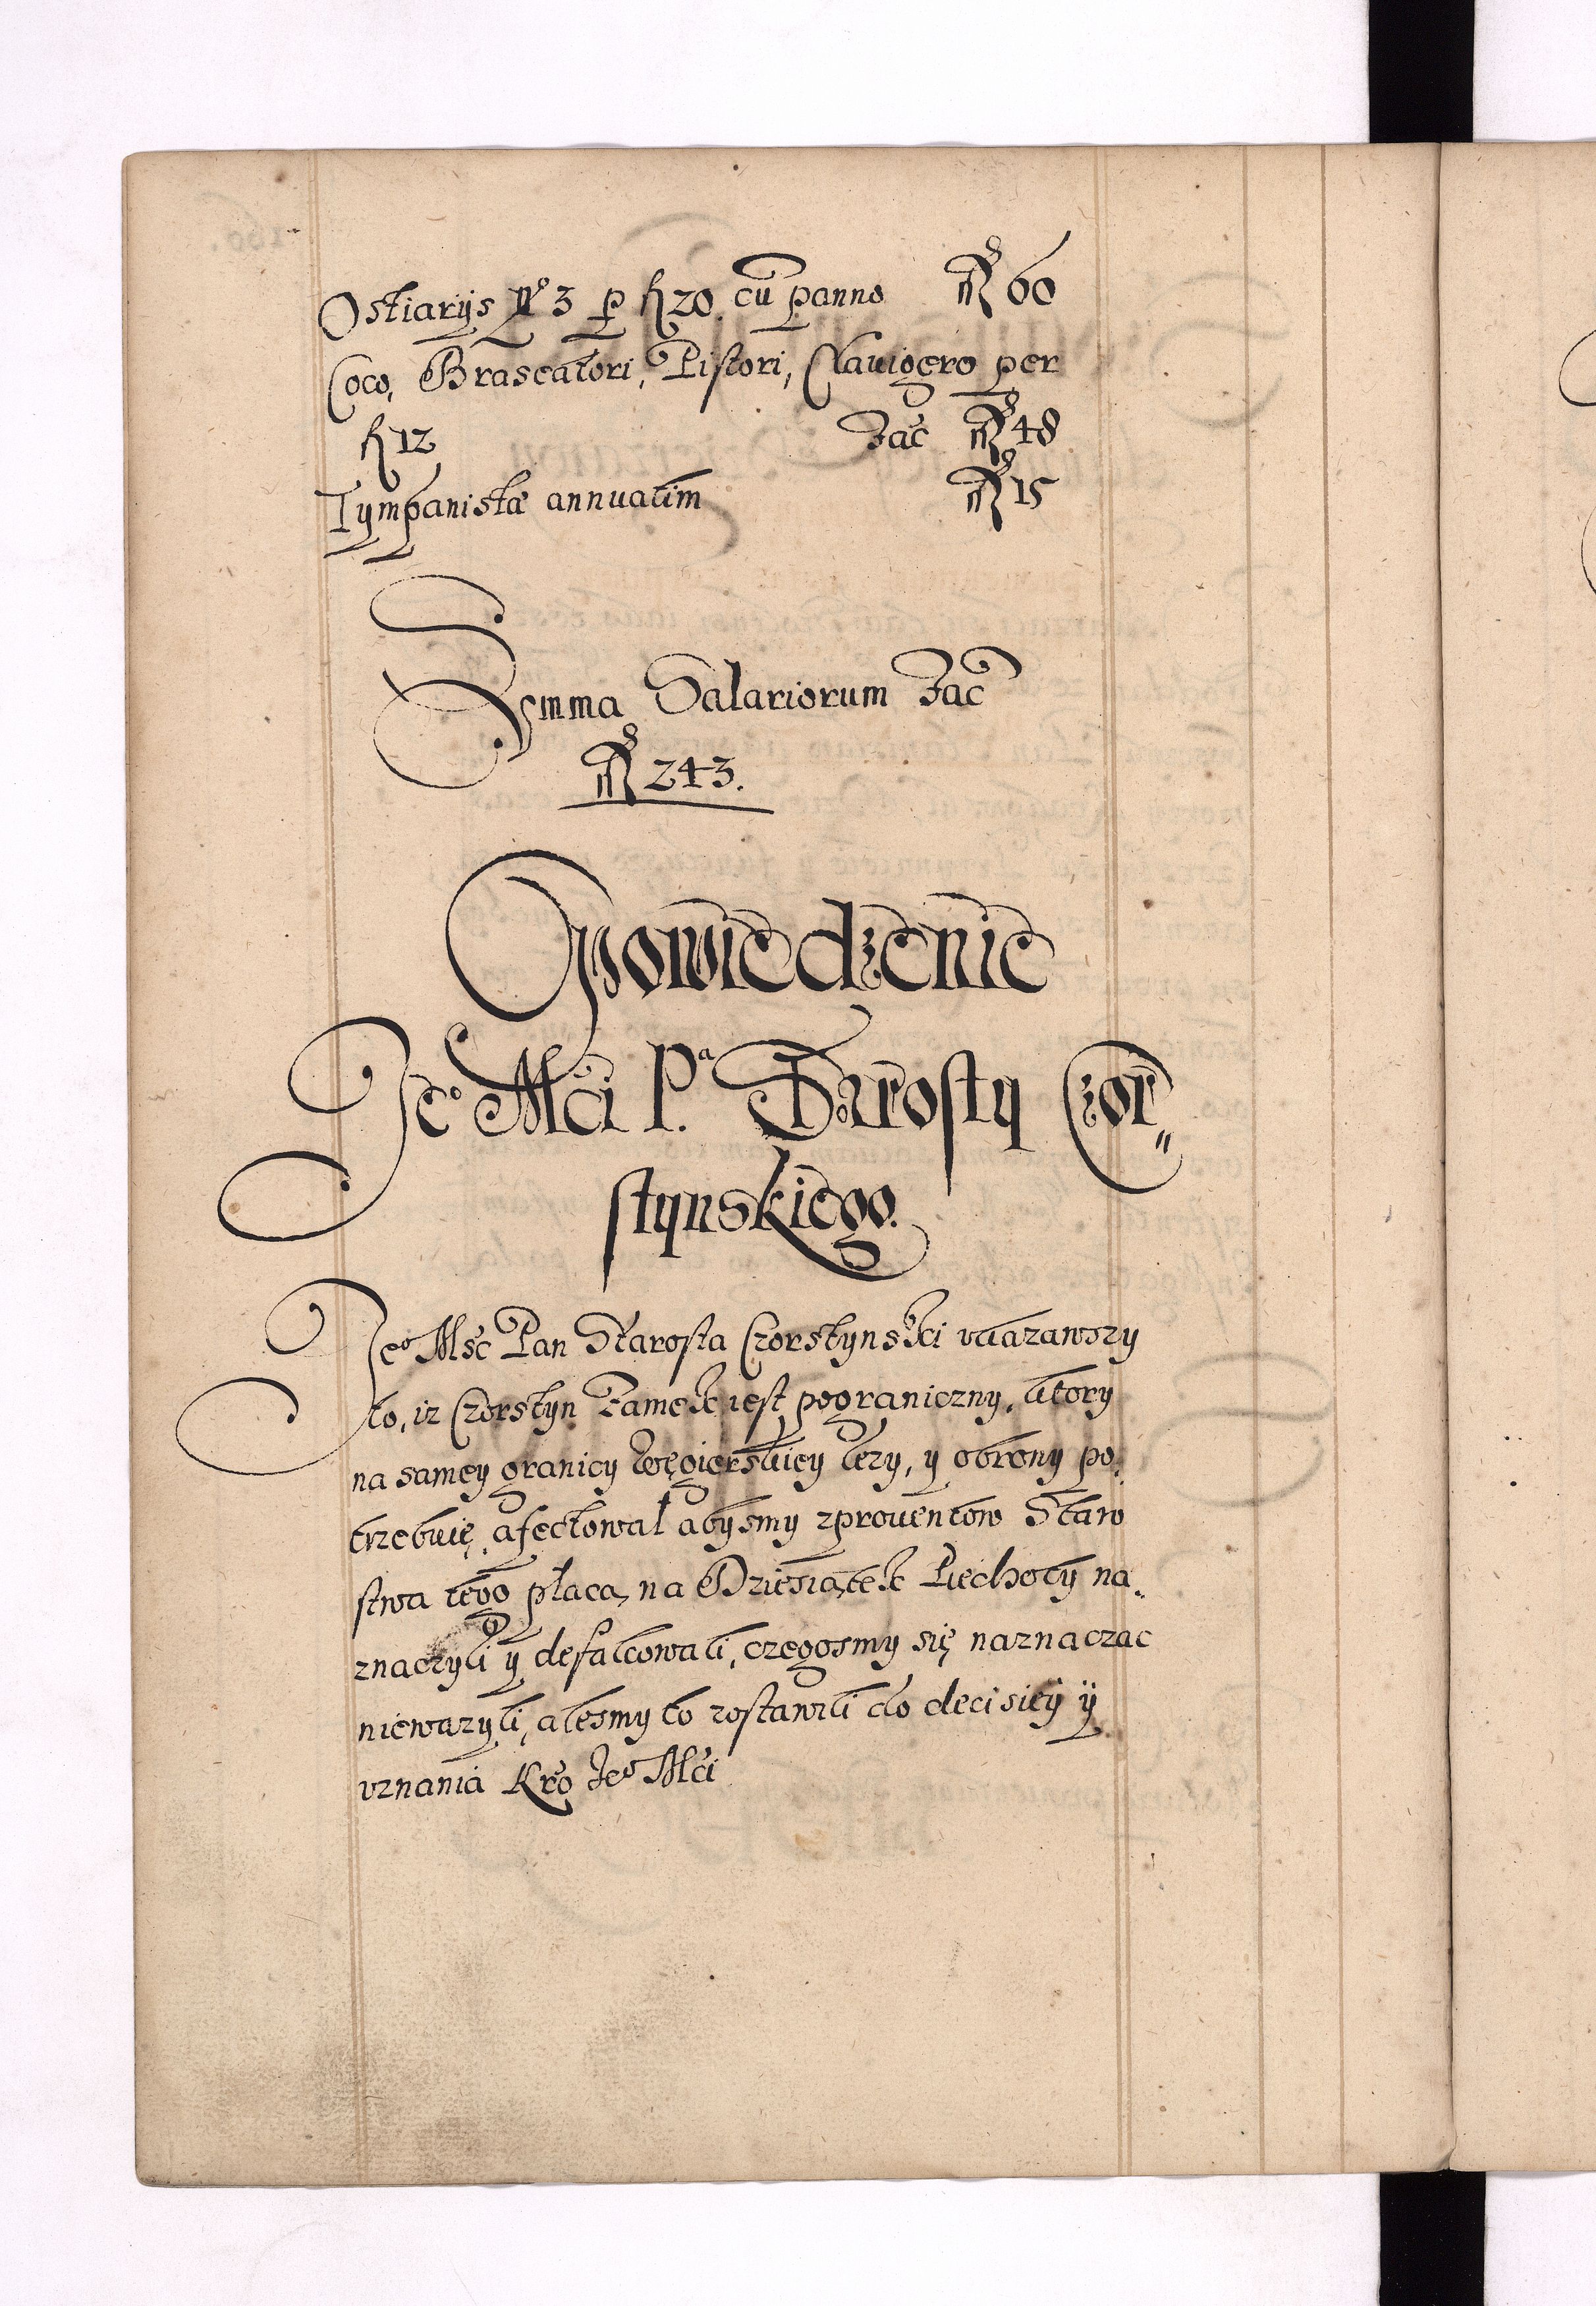 Ostiarijs No 3 p fl 20 cũ panno fl 60
Coco, Braseatori, Pistori, Clavigero per
fl 12 Fac fl 48
Tympanistæ annuatim fl 15
Summa Salariorum Fac
fl 243.
Opowiedzenie
Jeo Mci P.a Starosty Czor„
stynskiego.
Jeo Msc Pan Starosta Czorstynski uwazawszy
to, iz Czorstyn Zamek iest pograniczny, ktory
na samey granicy Węgierskiey lezy, y obrony po,
trzebuię, afectował abysmy z prouentow Staro
stwa tego płacą na Dziesiątek Piechoty na,
znaczyli y defalcowali, czegosmy się naznaczac
niewazyli, alesmy to zostawili do decisiey ÿ
uznania Kro Jeo Mci